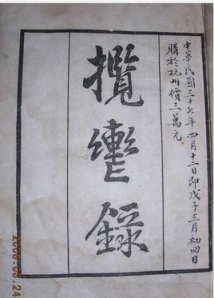 中華民國三十七年四月十二日即戊子三月初四日
購於杭州價三萬元
攬轡錄